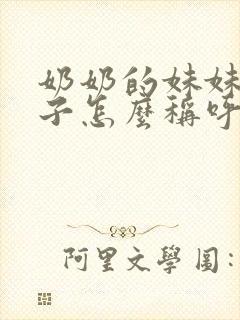 奶奶的妹妹
子怎麼稱呼
阿里文學圖: